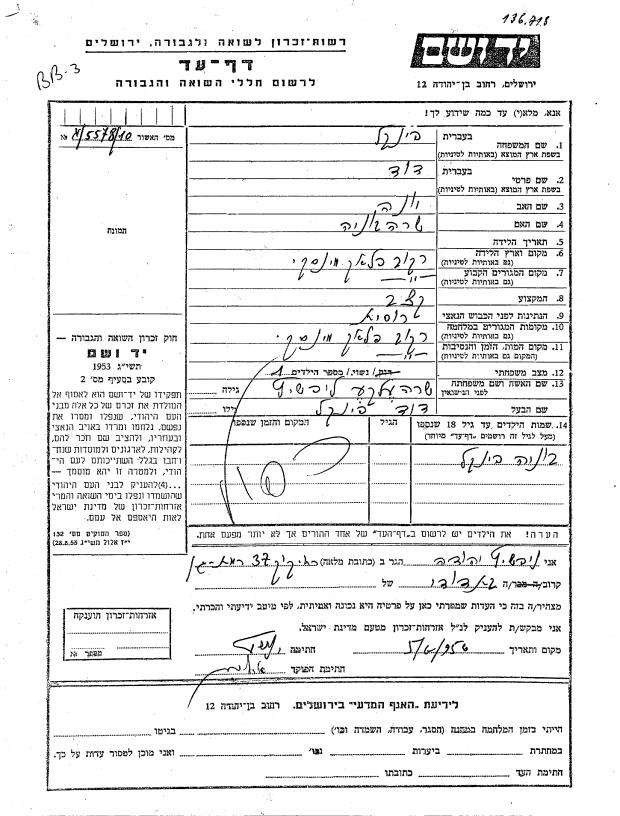 136718
BB-3
יד ושם
ירושלים, רחוב בן-יהודה 12
רשות-זכרון לשואה ולגבורה, ירושלים
דף-עד
לרשום חללי השואה והגבורה
מס' האשור
№
תמונה
חוק זכרון השואה והגבורה —
יד ושם
תשי"ג 1953
קובע בסעיף מס' 2
תפקידו של יד-ושם הוא לאסוף אל
המולדת את זכרם של כל אלה מבני
העם היהודי, שנפלו ומסרו את
נפשם, נלחמו ומרדו באויב הנאצי
ובעוזריו, ולהציב שם וזכר להם,
לקהילות, לארגונים ולמוסדות שנח-
רבו בגלל השתייכותם לעם היהו-
די, ולמטרה זו יהא מוסמך —
...(4)להעניק לבני העם היהודי
שהושמדו ונפלו בימי השואה והמרי
אזרחות-זכרון של מדינת ישראל
לאות היאספם אל עמם.
ספר החוקים מס' 132
י"ז אלול תשי"ג (28.8.53)
אנא, מלא(י) עד כמה שידוע לך!
1. שם המשפחה
בעברית
בשפת ארץ המוצא (באותיות לטיניות)
2. שם פרטי
בעברית דוד
בשפת ארץ המוצא (באותיות לטיניות)
3. שם האב יונה
4. שם האם שרה
5. תאריך הלידה
6. מקום וארץ הלידה
(גם באותיות לטיניות)
7. מקום המגורים הקבוע
(גם באותיות לטיניות)
8. המקצוע קצב
9. הנתינות לפני הכבוש הנאצי
10. מקומות המגורים במלחמה
(גם באותיות לטיניות)
11. מקום המות, הזמן והנסיבות
(המקום גם באותיות לטיניות)
12. מצב משפחתי רווק/ נשוי/ מספר הילדים 1
13. שם האשה ושם משפחתה
לפני הנישואין
שרה ליבשיץ גילה
שם הבעל דוד גילו
14. שמות הילדים עד גיל 18 שנספו
(מעל לגיל זה רושמים "דף-עד" מיוחד)
הגיל
המקום והזמן שנספו
הערה! את הילדים יש לרשום ב"דף-העד" של אחד ההורים אך לא יותר מפעם אחת.
אני ליבשיץ יהודה הגר ב (כתובת מלאה) 37
קרוב/ה מכר/ה של
מצהיר/ה בזה כי העדות שמסרתי כאן על פרטיה היא נכונה ואמיתית, לפי מיטב ידיעתי והכרתי.
אני מבקש/ת להעניק לנ"ל אזרחות-זכרון מטעם מדינת ישראל.
מקום ותאריך חתימה
חתימת הפוקד
אזרחות-זכרון הוענקה
מסמך №
לידיעת "האגף המדעי" בירושלים. רחוב בן-יהודה 12
הייתי בזמן המלחמה במחנה (הסגר, עבודה, השמדה וכו') בגיטו
במחתרת ביערות וכו' ואני מוכן למסור עדות על כך.
חתימת העד כתובתו